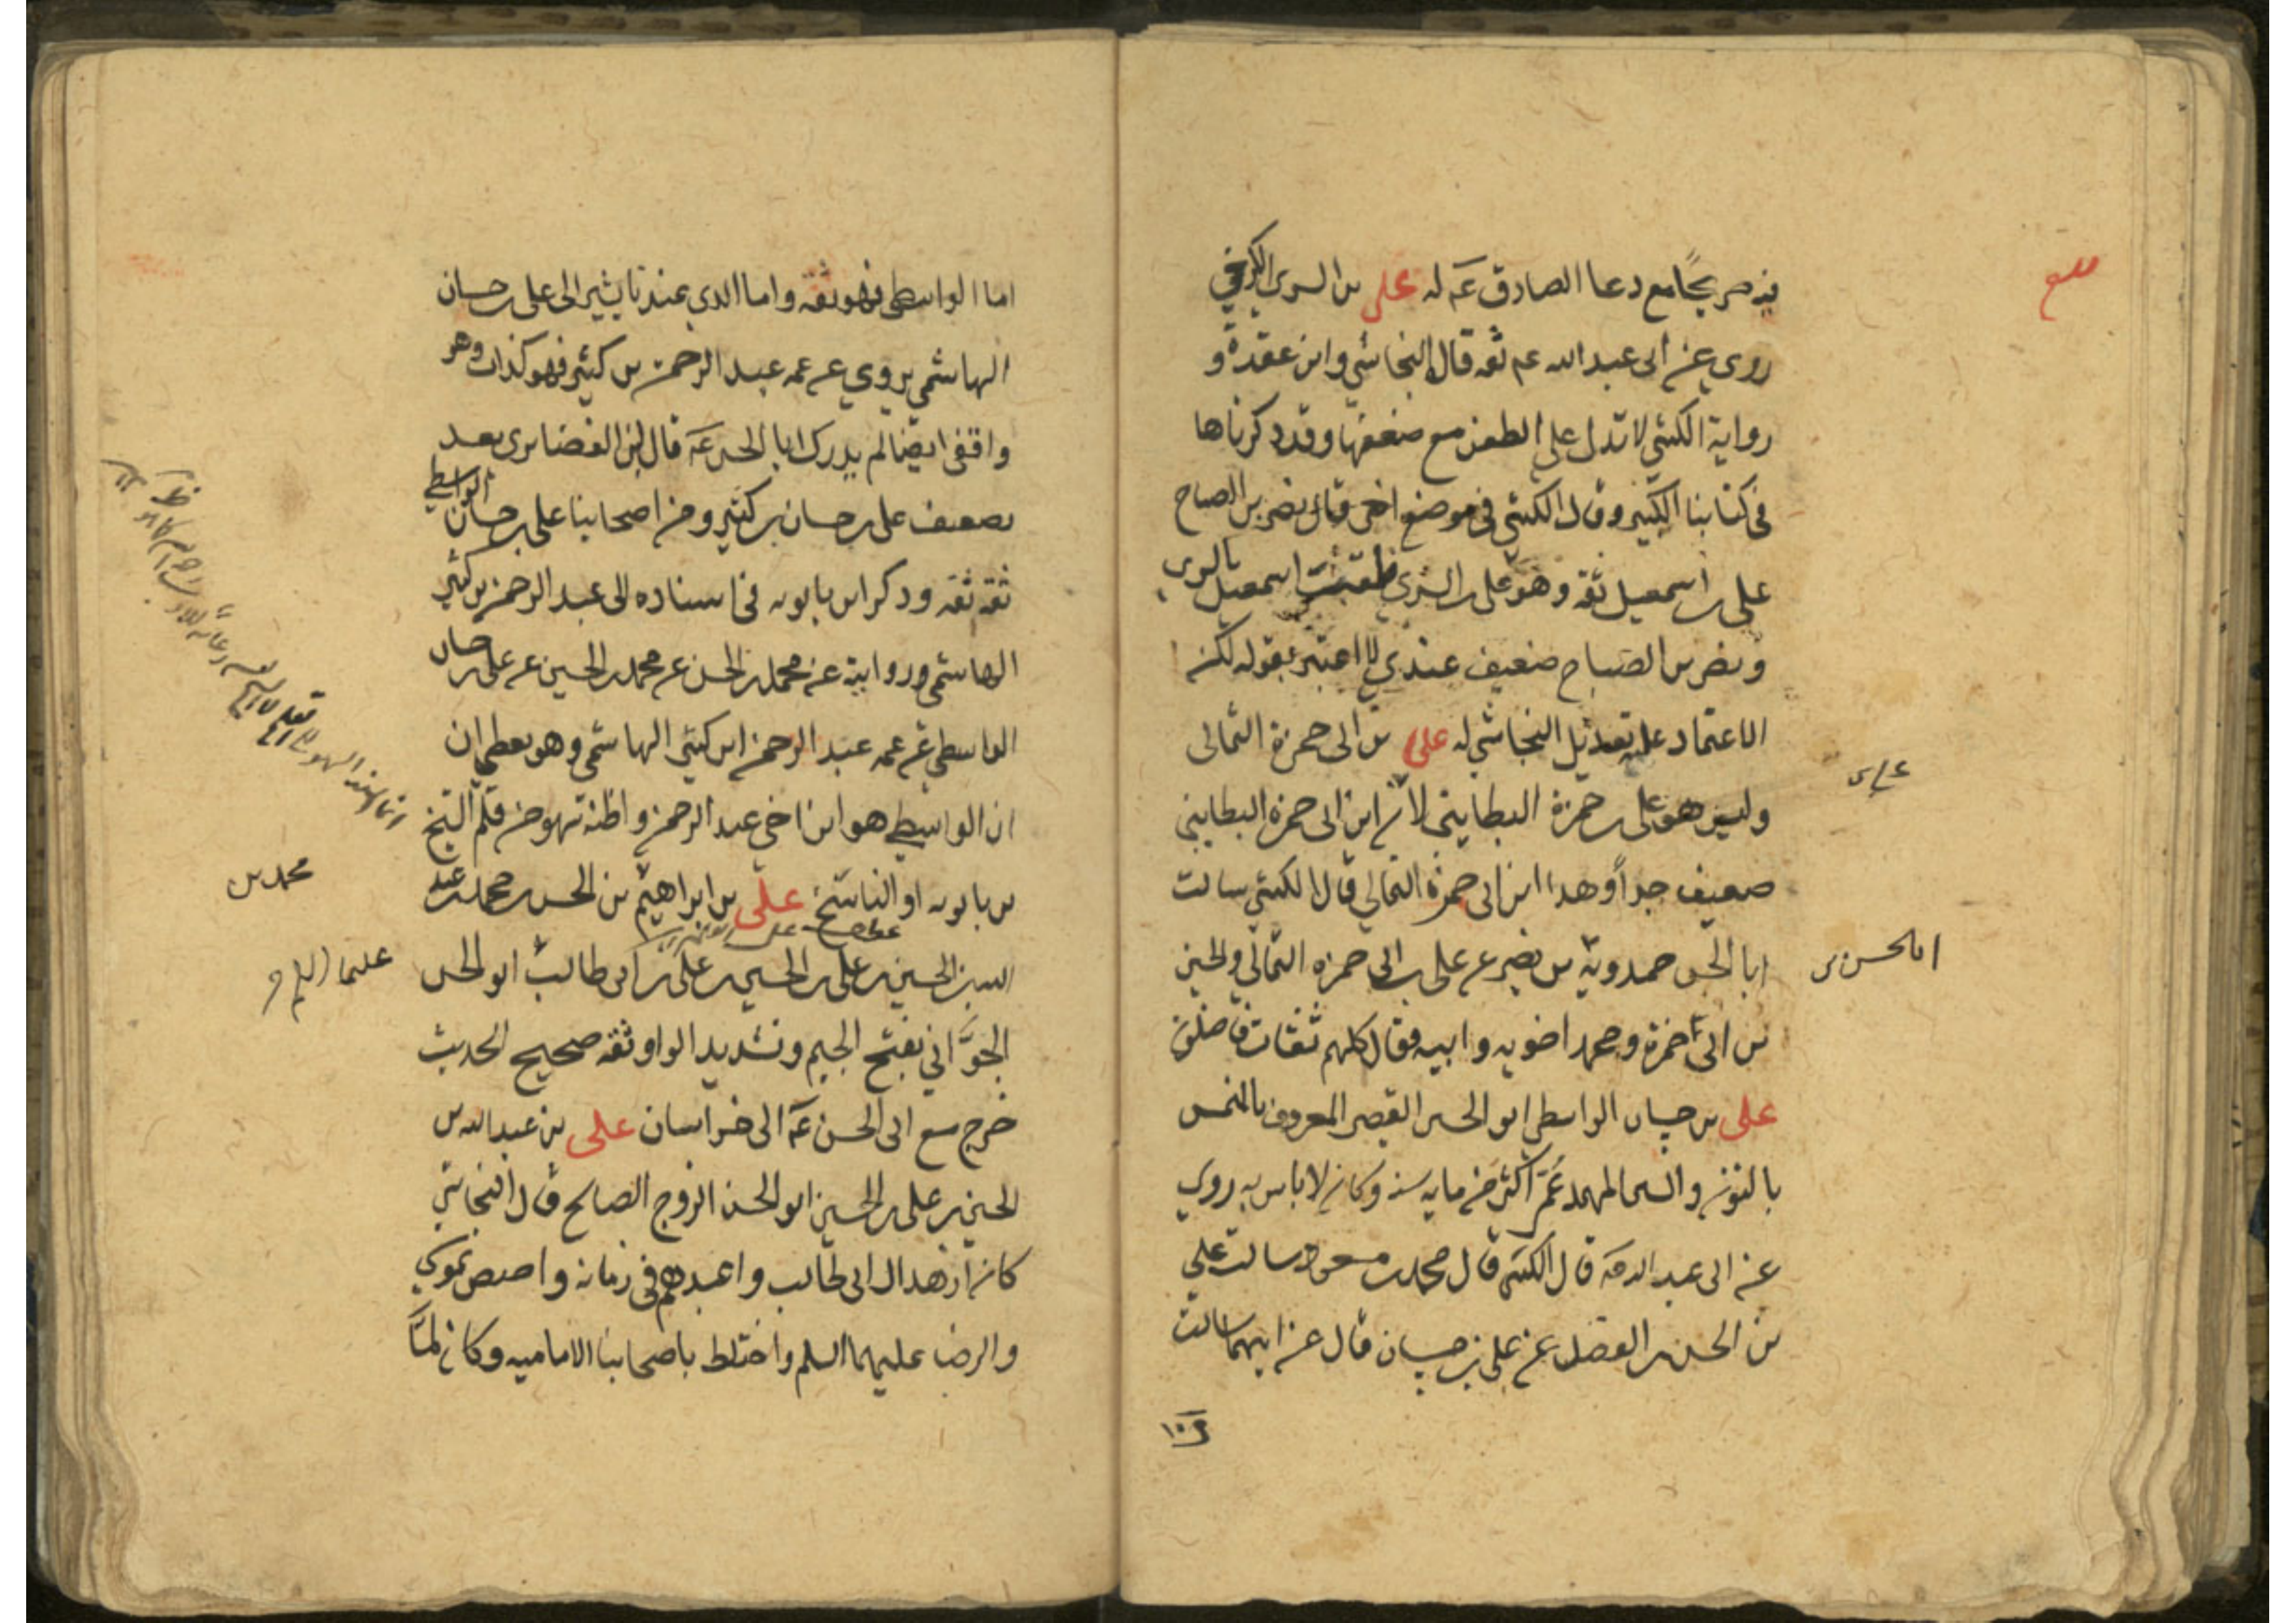 فيه صريحًا مع دعا الصادق عَم له علي بن السري الكرخي
روي عن ابى عبد الله عم ثقه قال النجاشي وابن عقدة و
رواية الكشي لا تدل على الطعن مع ضعفها وقد ذكرناها
فى كتابنا الكبير وقال الكشي في موضع اخر قال نصر بن الصباح
على بن اسمعيل ثقة وهو على بن السري اسمعيل بالسري
ونصر بن الصباح ضعيف عندي لا اعتبر بقوله لكن
الاعتماد على تعديل النجاشي له علي بن ابى حمزة الثمالى
وليس هو على بن حمزة البطايني لان ابن ابى حمزة البطايني
ضعيف جداً وهذا ابن ابى حمزة الثمالي قال الكشي سالت
ابا الحسن حمدويه بن نصير عن على بن ابى حمزه الثمالي والحسين
بن ابى حمزة ومحمد اخويه وابيه فقال كلهم ثقات فاضلون
على بن حسان الواسطي ابو الحسن القصير المعروف بالمنمس
بالنون والسين المهملة عُمّر اكثر من مايه سنة وكان لا باس به روي
عن ابى عبد الله عَم قال الكشي قال محمد بن مسعود سالت علي
بن الحسن بن الفضل عن على بن حسان قال عن ايهما سالت
على بن
ابا الحسن بن
اما الواسطي فهو ثقه واما الذي عندنا يشير الى على بن حسان
الهاشمي يروي عن عمه عبد الرحمن بن كثير فهو كذاب وهو
واقفى ايضا لم يدرك ابا الحسن عَم قال ابن الغضايري بعد
تضعيف على بن حسان بن كثير ومن اصحابنا على بن حسان الواسطي
ثقة ثقه وذكر ابن بابويه فى اسناده الى عبد الرحمن بن كثير
الهاشمي وروايته عن محمد بن الحسن عن محمد بن الحسين عن على بن حسان
الواسطي عن عمه عبد الرحمن ابن كثير الهاشمي وهو يعطي ان
ان الواسطي هو ابن اخي عبد الرحمن واظنه سهو من قلم الشيخ
بن بابويه او الناسخ علي بن ابراهيم بن الحسن بن محمد بن عبد
الله بن الحسين بن على بن الحسين بن على بن ابى طالب ابو الحسن
الجَوَّاني بفتح الجيم وتشديد الواو ثقه صحيح الحديث
خرج مع ابى الحسن عَم الى خراسان على بن عبد الله بن
الحسين بن على بن الحسين ابو الحسن الزوج الصالح قال النجاشي
كان ازهد ال ابى طالب واعبدهم فى زمانه واختص بموسي
والرضا عليهما السلم واختلط باصحابنا الاماميه وكان لمَّا
محمد بن